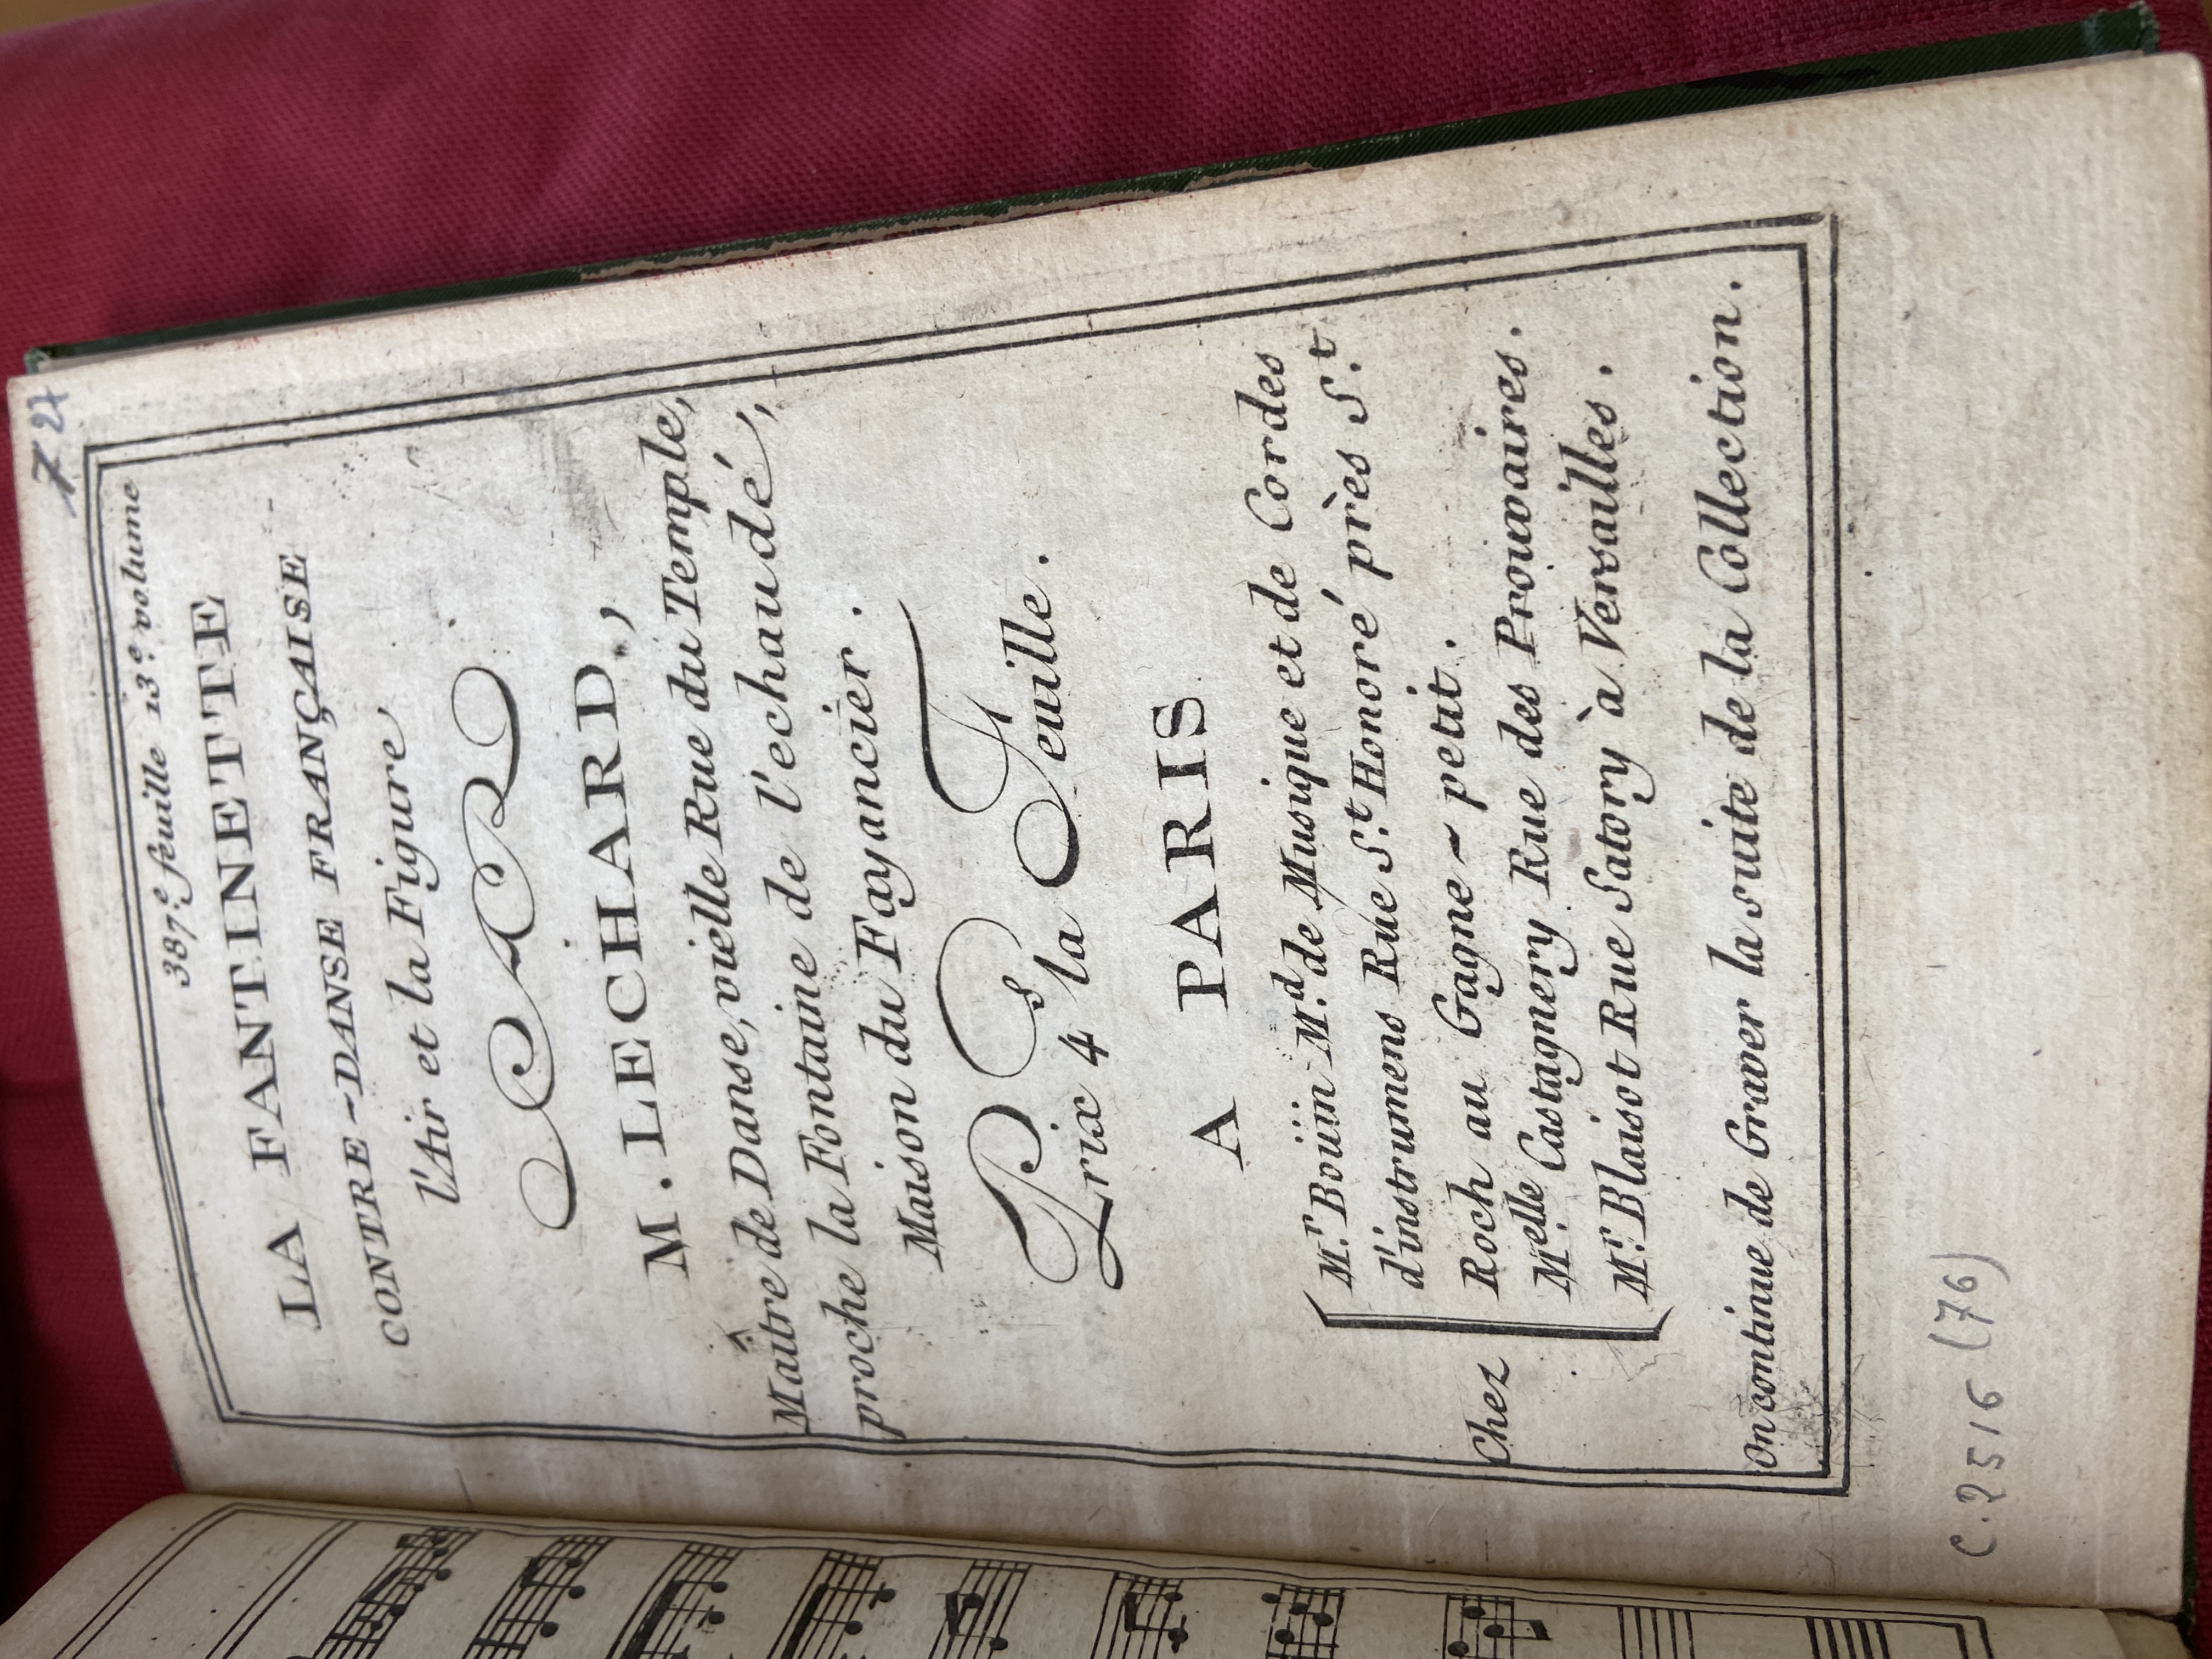 727
387.e feuille 13.e volume
LA FANTINETTE
CONTRE-DANSE FRANÇAISE
l'Air et la Figure
PAR
M. LECHARD,
Maître de Danse, vielle Rue du Temple,
proche la Fontaine de l'echaudé,
Maison du Fayancier.
Prix 4 s la Feuille.
A PARIS
Chez
M.r Boüin M.d de Musique et de Cordes
d'instrumens Rue S.t Honoré près S.t
Roch au Gagne-petit.
M.elle Castagnery Rue des Prouvaires.
M.r Blaisot Rue Satory à Versailles.
On continue de Graver la suite de la Collection.
C.2516 (76)